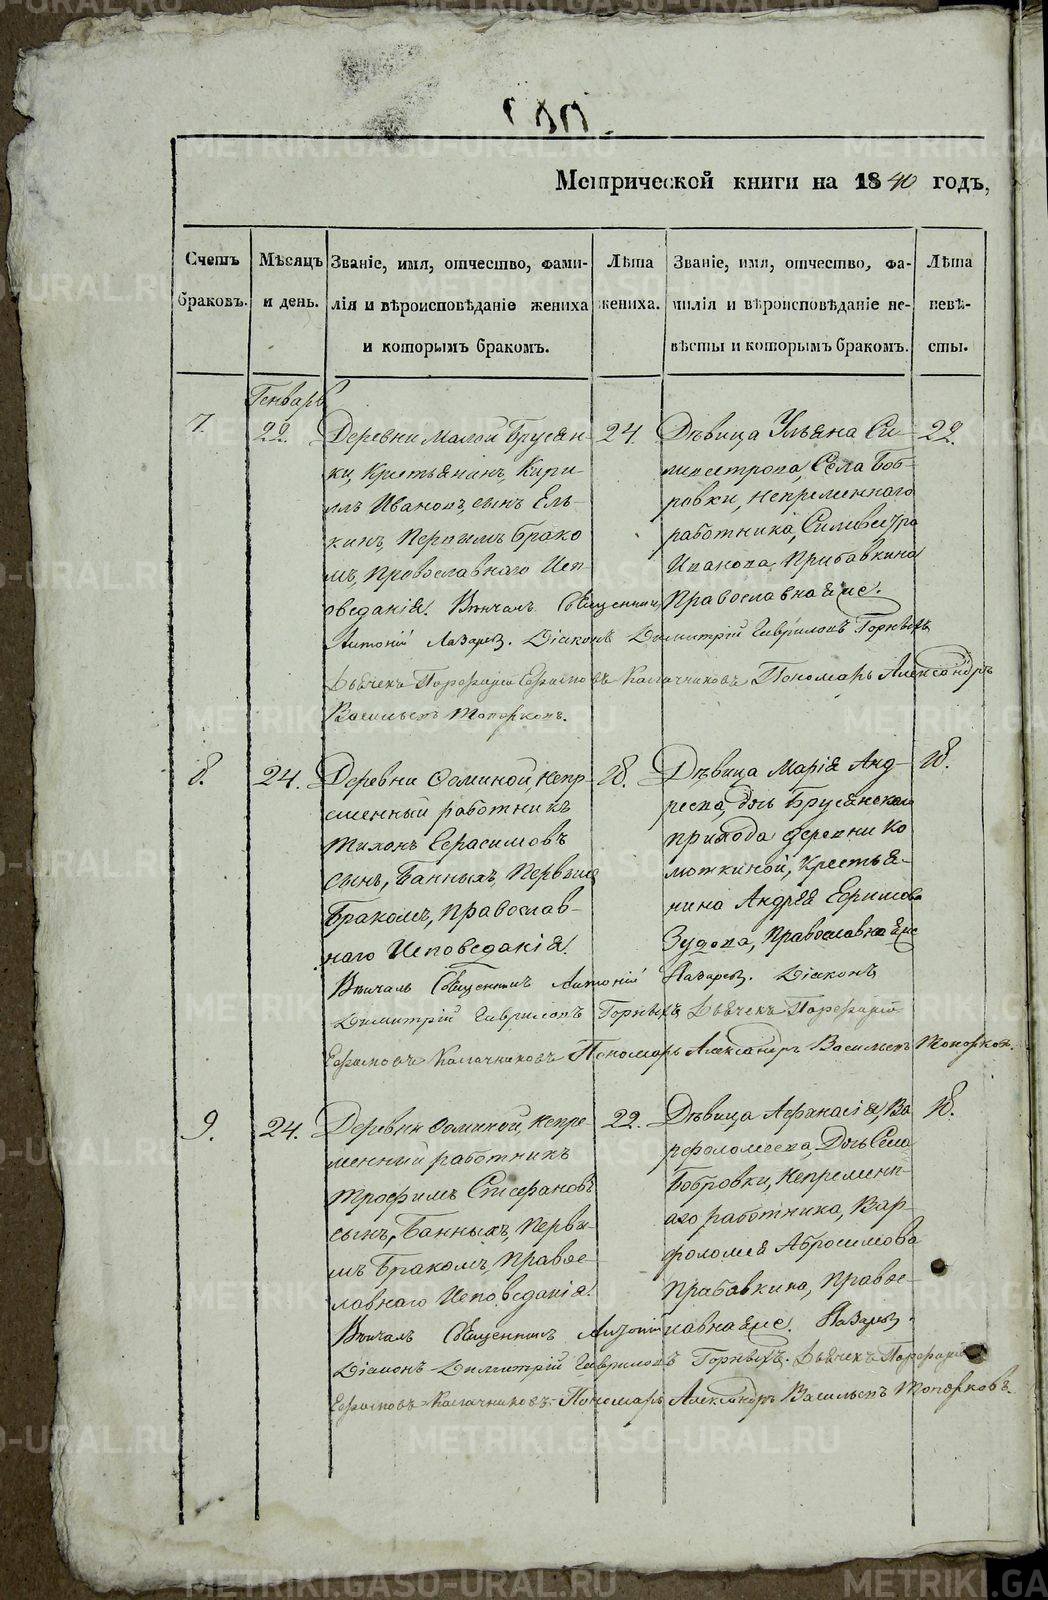 Метрической книги на 1840 годъ,
Счетъ браковъ.
Мѣсяцъ и день.
Званіе, имя, отчество, фами-
лія и вѣроисповѣданіе жениха
и которымъ бракомъ.
Лѣта жениха.
Званіе, имя, отчество, фа-
милія и вѣроисповѣданіе не-
вѣсты и которымъ бракомъ.
Лѣта невѣ-
сты.
Генварь
7.
22.
Деревни Малой Брусян-
ки, Крестьянинъ, Кири-
лъ Ивановъ, сынъ Ель-
кинъ, Первымъ Брако
мъ, Православнаго Исп-
оведанія.
24.
Дѣвица Ульяна Си-
ливестрова, Села Боб-
ровки, Непременнаго
работника, Силивестра
Иванова Прибавкина
Православная же.
22.
Вѣнчалъ Священникъ
Антоній Лазаревъ. Діаконъ Димитрій Гавриловъ Горныхъ
Дьячекъ Порфирій Калачниковъ Пономарь Александръ
Васильевъ Топорковъ.
8.
24.
Деревни Осминой, Непр-
еменный работникъ
Тихонъ Герасимовъ
сынъ, Банныхъ, Первымъ
Бракомъ, Православ-
наго Исповеданія.
18.
Дѣвица Марія Анд-
реева, дочь Брусянскаго
прихода деревни Ко
лоткиной, Крестья-
нина Андрея Ефимова
Зудова, Православная же
18.
Вѣнчалъ Священникъ Антоній Лазаревъ. Діаконъ
Димитрій Гавриловъ Горныхъ Дьячекъ Порфирій
Калачниковъ Пономарь Александръ Васильевъ Топорков.
9.
24.
Деревни Осминой, Непре-
менный работникъ
Трофимъ Стефановъ
сынъ, Банныхъ, Первы-
мъ Бракомъ, Правос-
лавнаго Исповеданія.
22.
Дѣвица Афанасія, Ва
рфоломеева, Дочь Села
Бобровки, Непременн-
аго работника, Вар-
фоломея Абросимова
Прибавкина, Правос-
лавная же.
18.
Вѣнчалъ Священникъ Антоній Лазаревъ.
Діаконъ Димитрій Гавриловъ Горныхъ. Дьячекъ Порфирій
Калачниковъ Пономарь Александръ Васильевъ Топорковъ.
METRIKI.GASO-URAL.RU